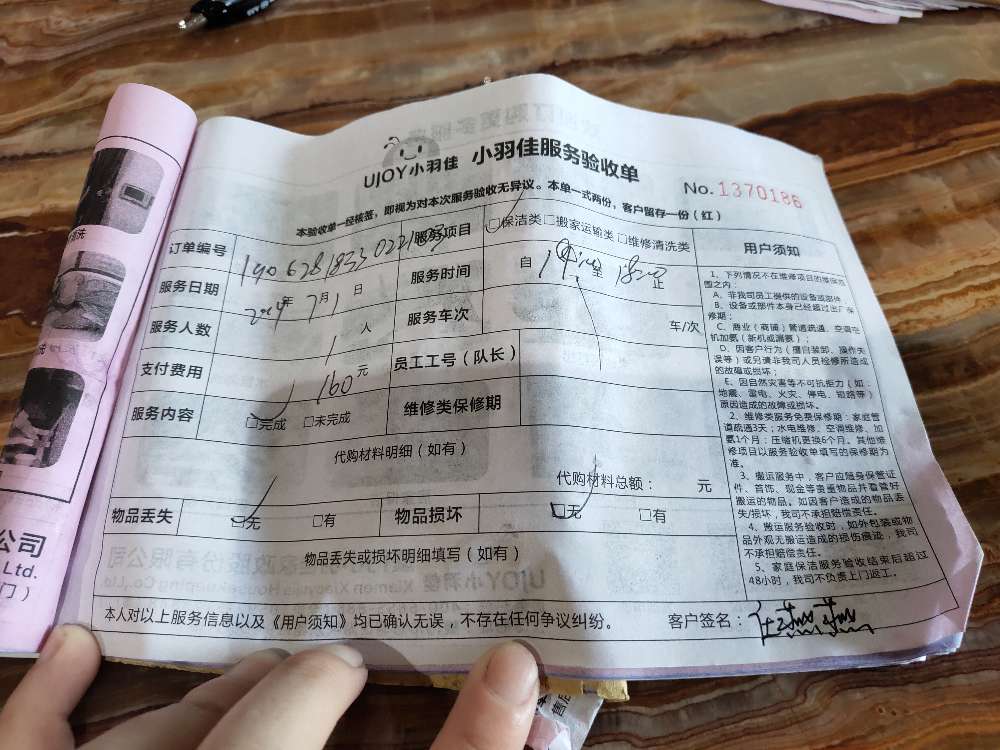 UJOY小羽佳 小羽佳服务验收单
No. 1370186
本验收单一经核签，即视为对本次服务验收无异议。本单一式两份，客户留存一份（红）
订单编号
服务项目 □保洁类□搬家运输类□维修清洗类
服务日期 年 7月1日
服务时间 自 至 止
服务人数 1人
服务车次 车/次
支付费用 160元
员工工号（队长）
服务内容 □完成 □未完成
维修类保修期
代购材料明细（如有）
代购材料总额： 元
物品丢失 □无 □有
物品损坏 □无 □有
物品丢失或损坏明细填写（如有）
本人对以上服务信息以及《用户须知》均已确认无误，不存在任何争议纠纷。
客户签名：
用户须知
1、下列情况不在维修项目的维保范
围之内：
A、非我司员工提供的设备或部件
B、设备或部件本身已经超过出厂保
修期；
C、商业（商铺）管道疏通、空调空
机加氨（新机或漏氨）；
D、因客户行为（擅自装卸、操作失
误等）或另请非我司人员检修所造成
的故障或损坏；
E、因自然灾害等不可抗拒力（如：
地震、雷电、火灾、停电、短路等）
原因造成的故障或损坏。
2、维修类服务免费保修期：家庭管
道疏通3天；水电维修、空调维修、加
氨1个月；压缩机更换6个月。其他维
修项目以服务验收单填写的保修期为
准。
3、搬运服务中，客户应随身保管证
件、首饰、现金等贵重物品并看管好
搬运的物品。如因客户造成的物品丢
失/损坏，我司不承担赔偿责任。
4、搬运服务验收时，如外包装或物
品外观无搬运造成的损伤痕迹，我司
不承担赔偿责任。
5、家庭保洁服务验收结束后超过
48小时，我司不负责上门返工。
公司
Ltd.
门）